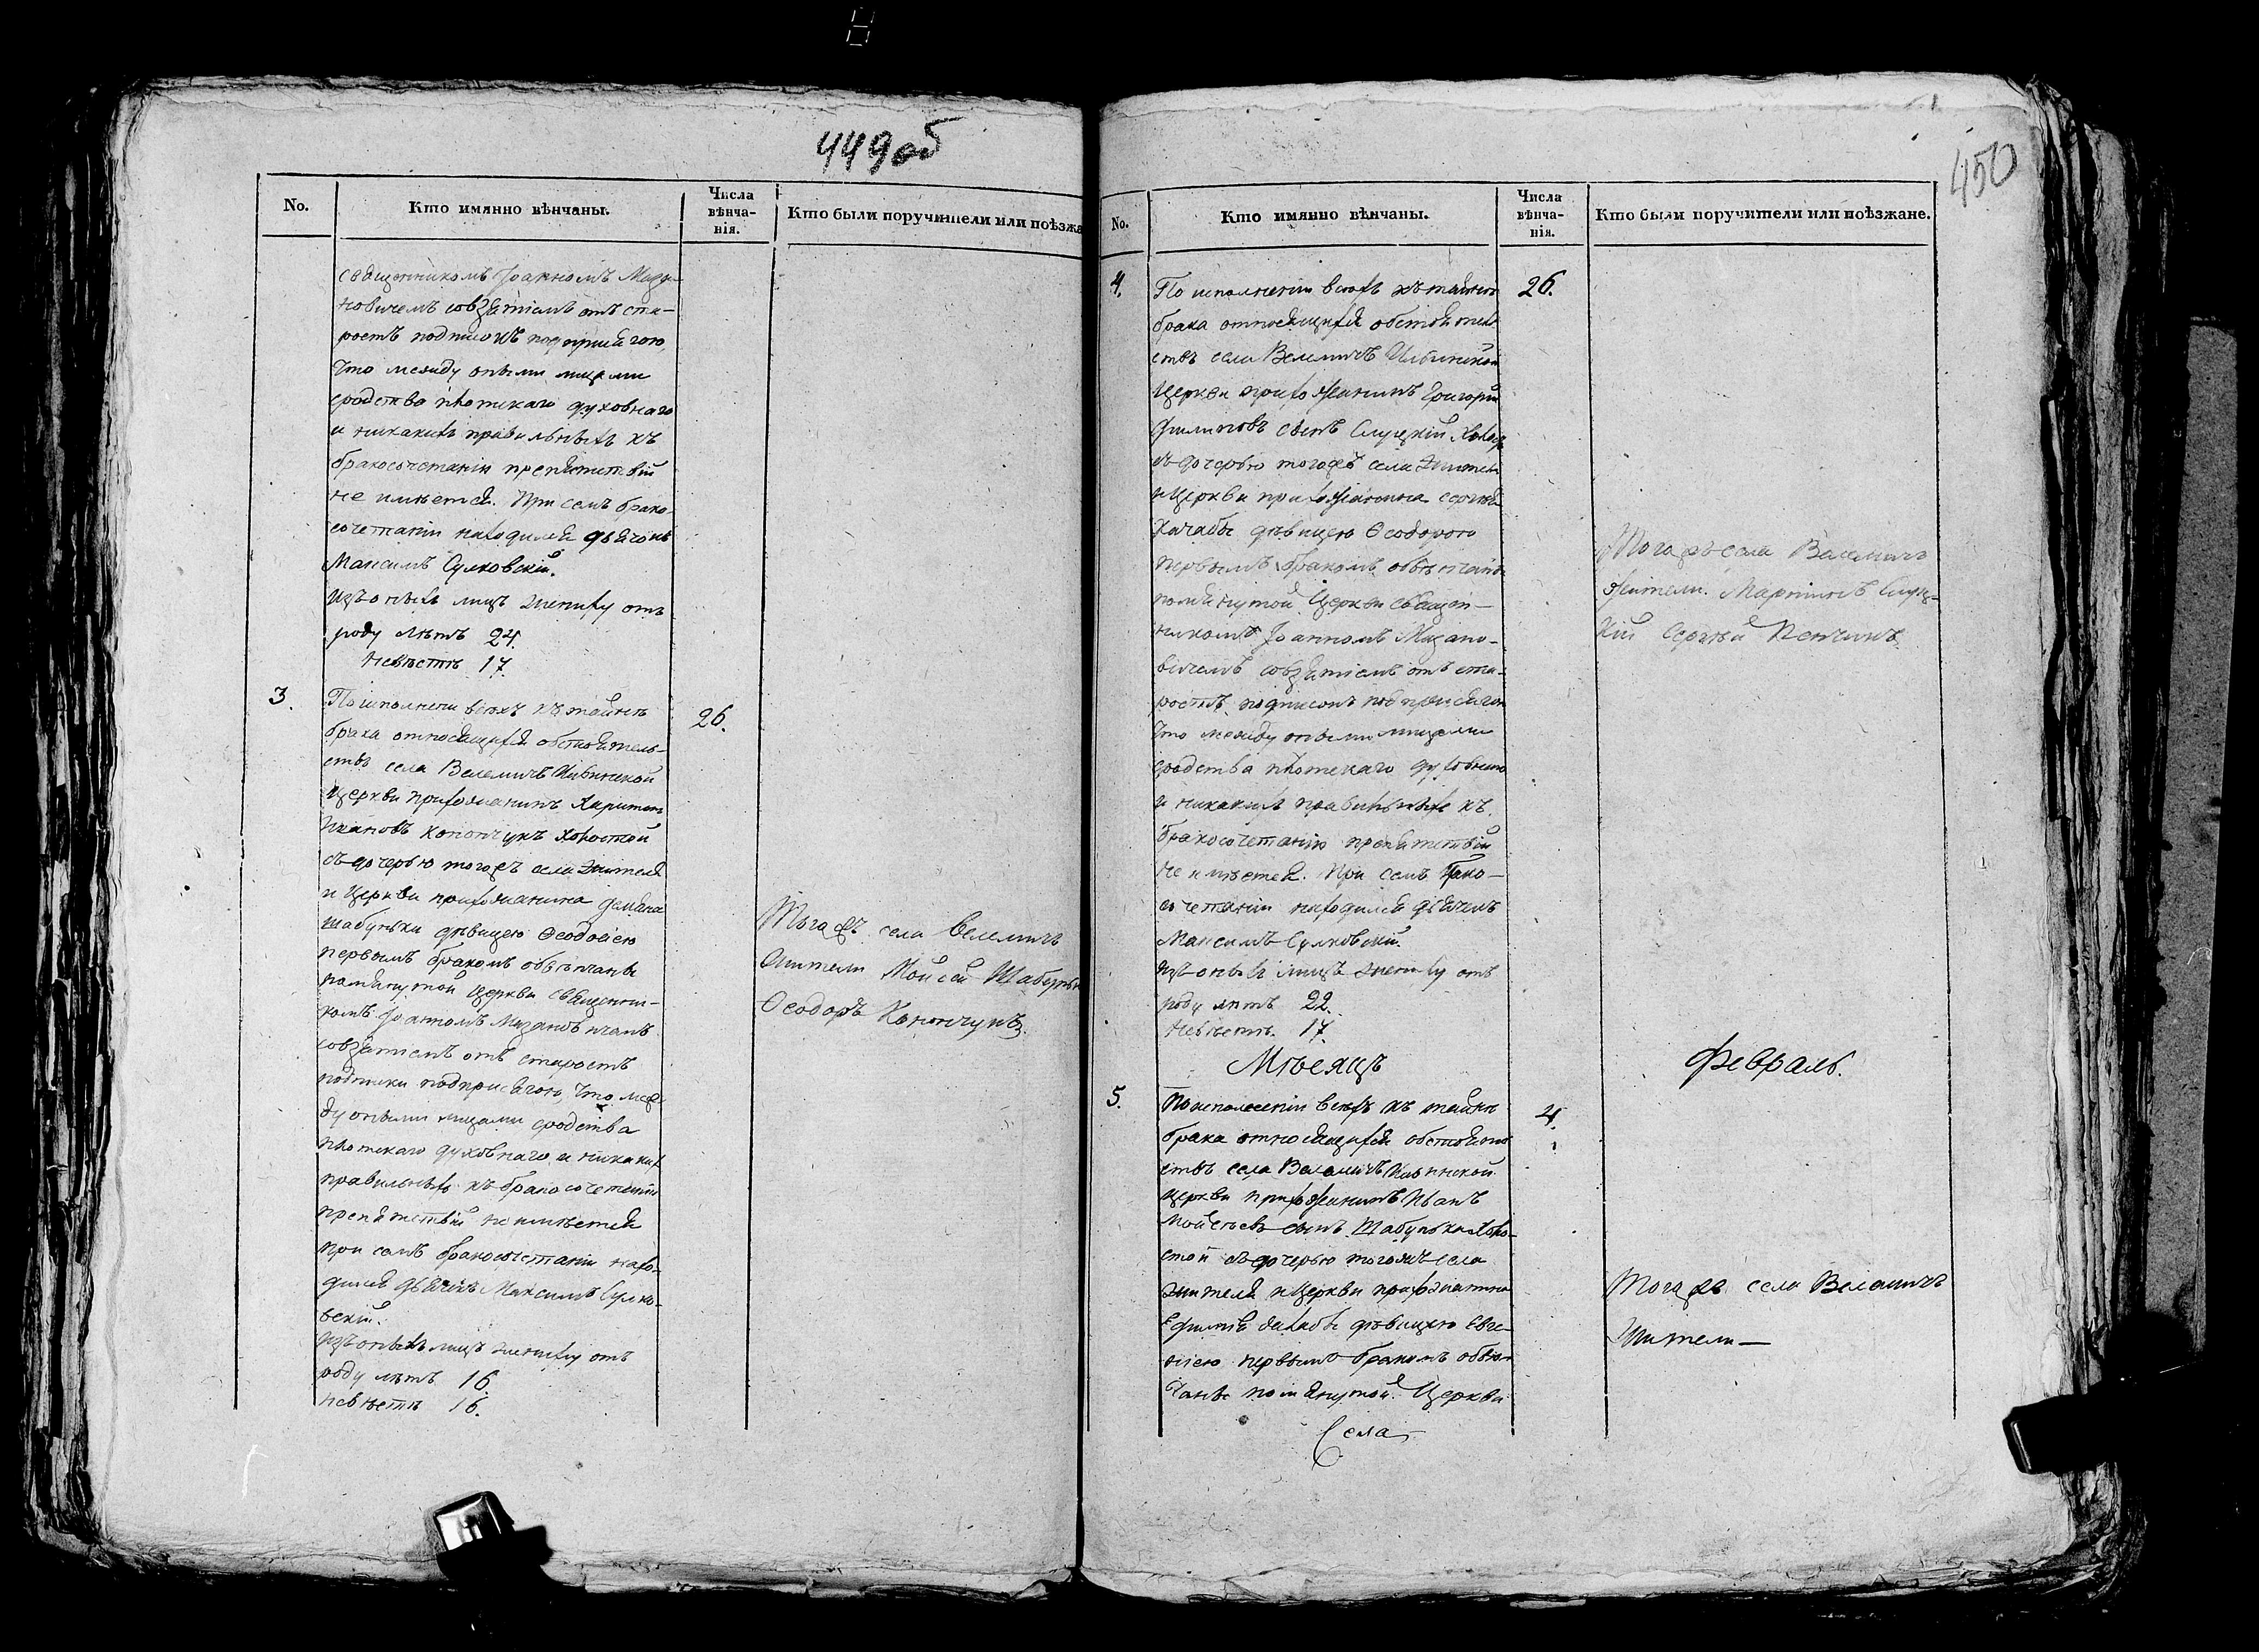 449об
No.
Кто имянно вѣнчаны.
Числа
вѣнча-
нія.
Кто были поручители или поѣзжа
священникомъ Іоанномъ
новичемъ совзятіемъ отъ ста-
ростъ подписокъ подприсягою,
Что между оными лицами
сродства плотскаго духовнаго
и никакихъ правильныхъ къ
бракосочетанію препятствій
не имѣется. При семъ брако-
сочетаніи находился дьячокъ
Максимъ Сулковскій.
Изъ оныхъ лицъ жениху отъ
роду лѣтъ 24.
Невѣстѣ 17.
3.
По исполненіи всѣхъ къ тайнѣ
26.
брака относящихся обстоятель-
ствъ села Велемичъ Ильинской
Церкви прихожанинъ Харитонъ
Ивановъ Конончукъ Холостой
съ дочерью тогожъ села жителя
и Церкви прихожанина Демяна
Шабуньки дѣвицею Ѳеодосіею
первымъ бракомъ обвѣнчаны
помянутой Церкви священни-
комъ Іоанномъ
совзятіемъ отъ старостъ
подписки подприсягою, Что меж-
ду оными лицами сродства
плотскаго духовнаго и никакихъ
правильныхъ къ бракосочетанію
препятствій не имѣется
при семъ бракосочетаніи нахо-
дился дьячекъ Максимъ Сулко-
вскій.
Изъ оныхъ лицъ жениху отъ
роду лѣтъ 16.
невѣстѣ 16.
Тогожъ села Велемичъ
жители Мойсей
Ѳеодоръ Конончукъ.
450
No.
Кто имянно вѣнчаны.
Числа
вѣнча-
нія.
Кто были поручители или поѣзжане.
4.
По исполненіи всѣхъ къ тайнѣ
26.
брака относящихся обстоятель
ствъ села Велемичъ Ильинской
Церкви прихожанинъ Григорій
Филиповъ сынъ Слуцкій
съ дочерью тогожъ села жителя
и Церкви прихожанина Сергѣя
дѣвицею Ѳеодорою
первымъ бракомъ обвѣнчаны
помянутой Церкви священ-
никомъ Іоанномъ Мизано-
вичемъ совзятіемъ отъ ста-
ростъ подписокъ подприсягою
Что между оными лицами
сродства плотскаго духовнаго
и никакихъ правильныхъ къ
бракосочетанію препятствій
не имѣется. При семъ брако-
сочетаніи находился дьячекъ
Максимъ Сулковскій.
Изъ оныхъ лицъ жениху отъ
роду лѣтъ 22.
Невѣстѣ. 17.
Тогожъ села Велемичъ
жители. Мартинъ Слуц-
кій Сергѣй
Мѣсяцъ
Февраль.
5.
По исполненіи всѣхъ къ тайнѣ
4.
брака относящихся обстоятель
ствъ села Велемичъ Ильинской
Церкви прихожанинъ Иванъ
Мойсѣевъ сынъ Шабунька Холо-
стой съ дочерью тогожъ села
жителя и Церкви прихожанина
дѣвицею Евге-
ніею первымъ бракомъ обвѣн-
чаны помянутой Церкви
Тогожъ села Велемичъ
Жители—
Села